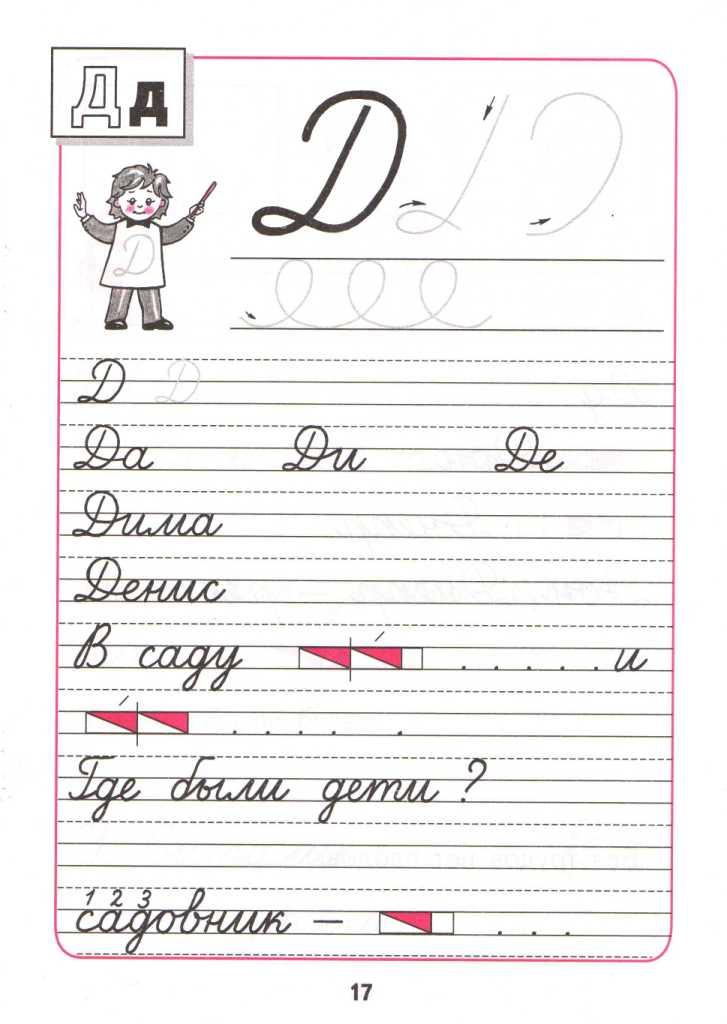 Д д
Д
Д
Д Д
Да Ди De
Дима
Денис
В саду . . . . . и
. . . . .
Где были дети ?
1 2 3
садовник – . . .
17